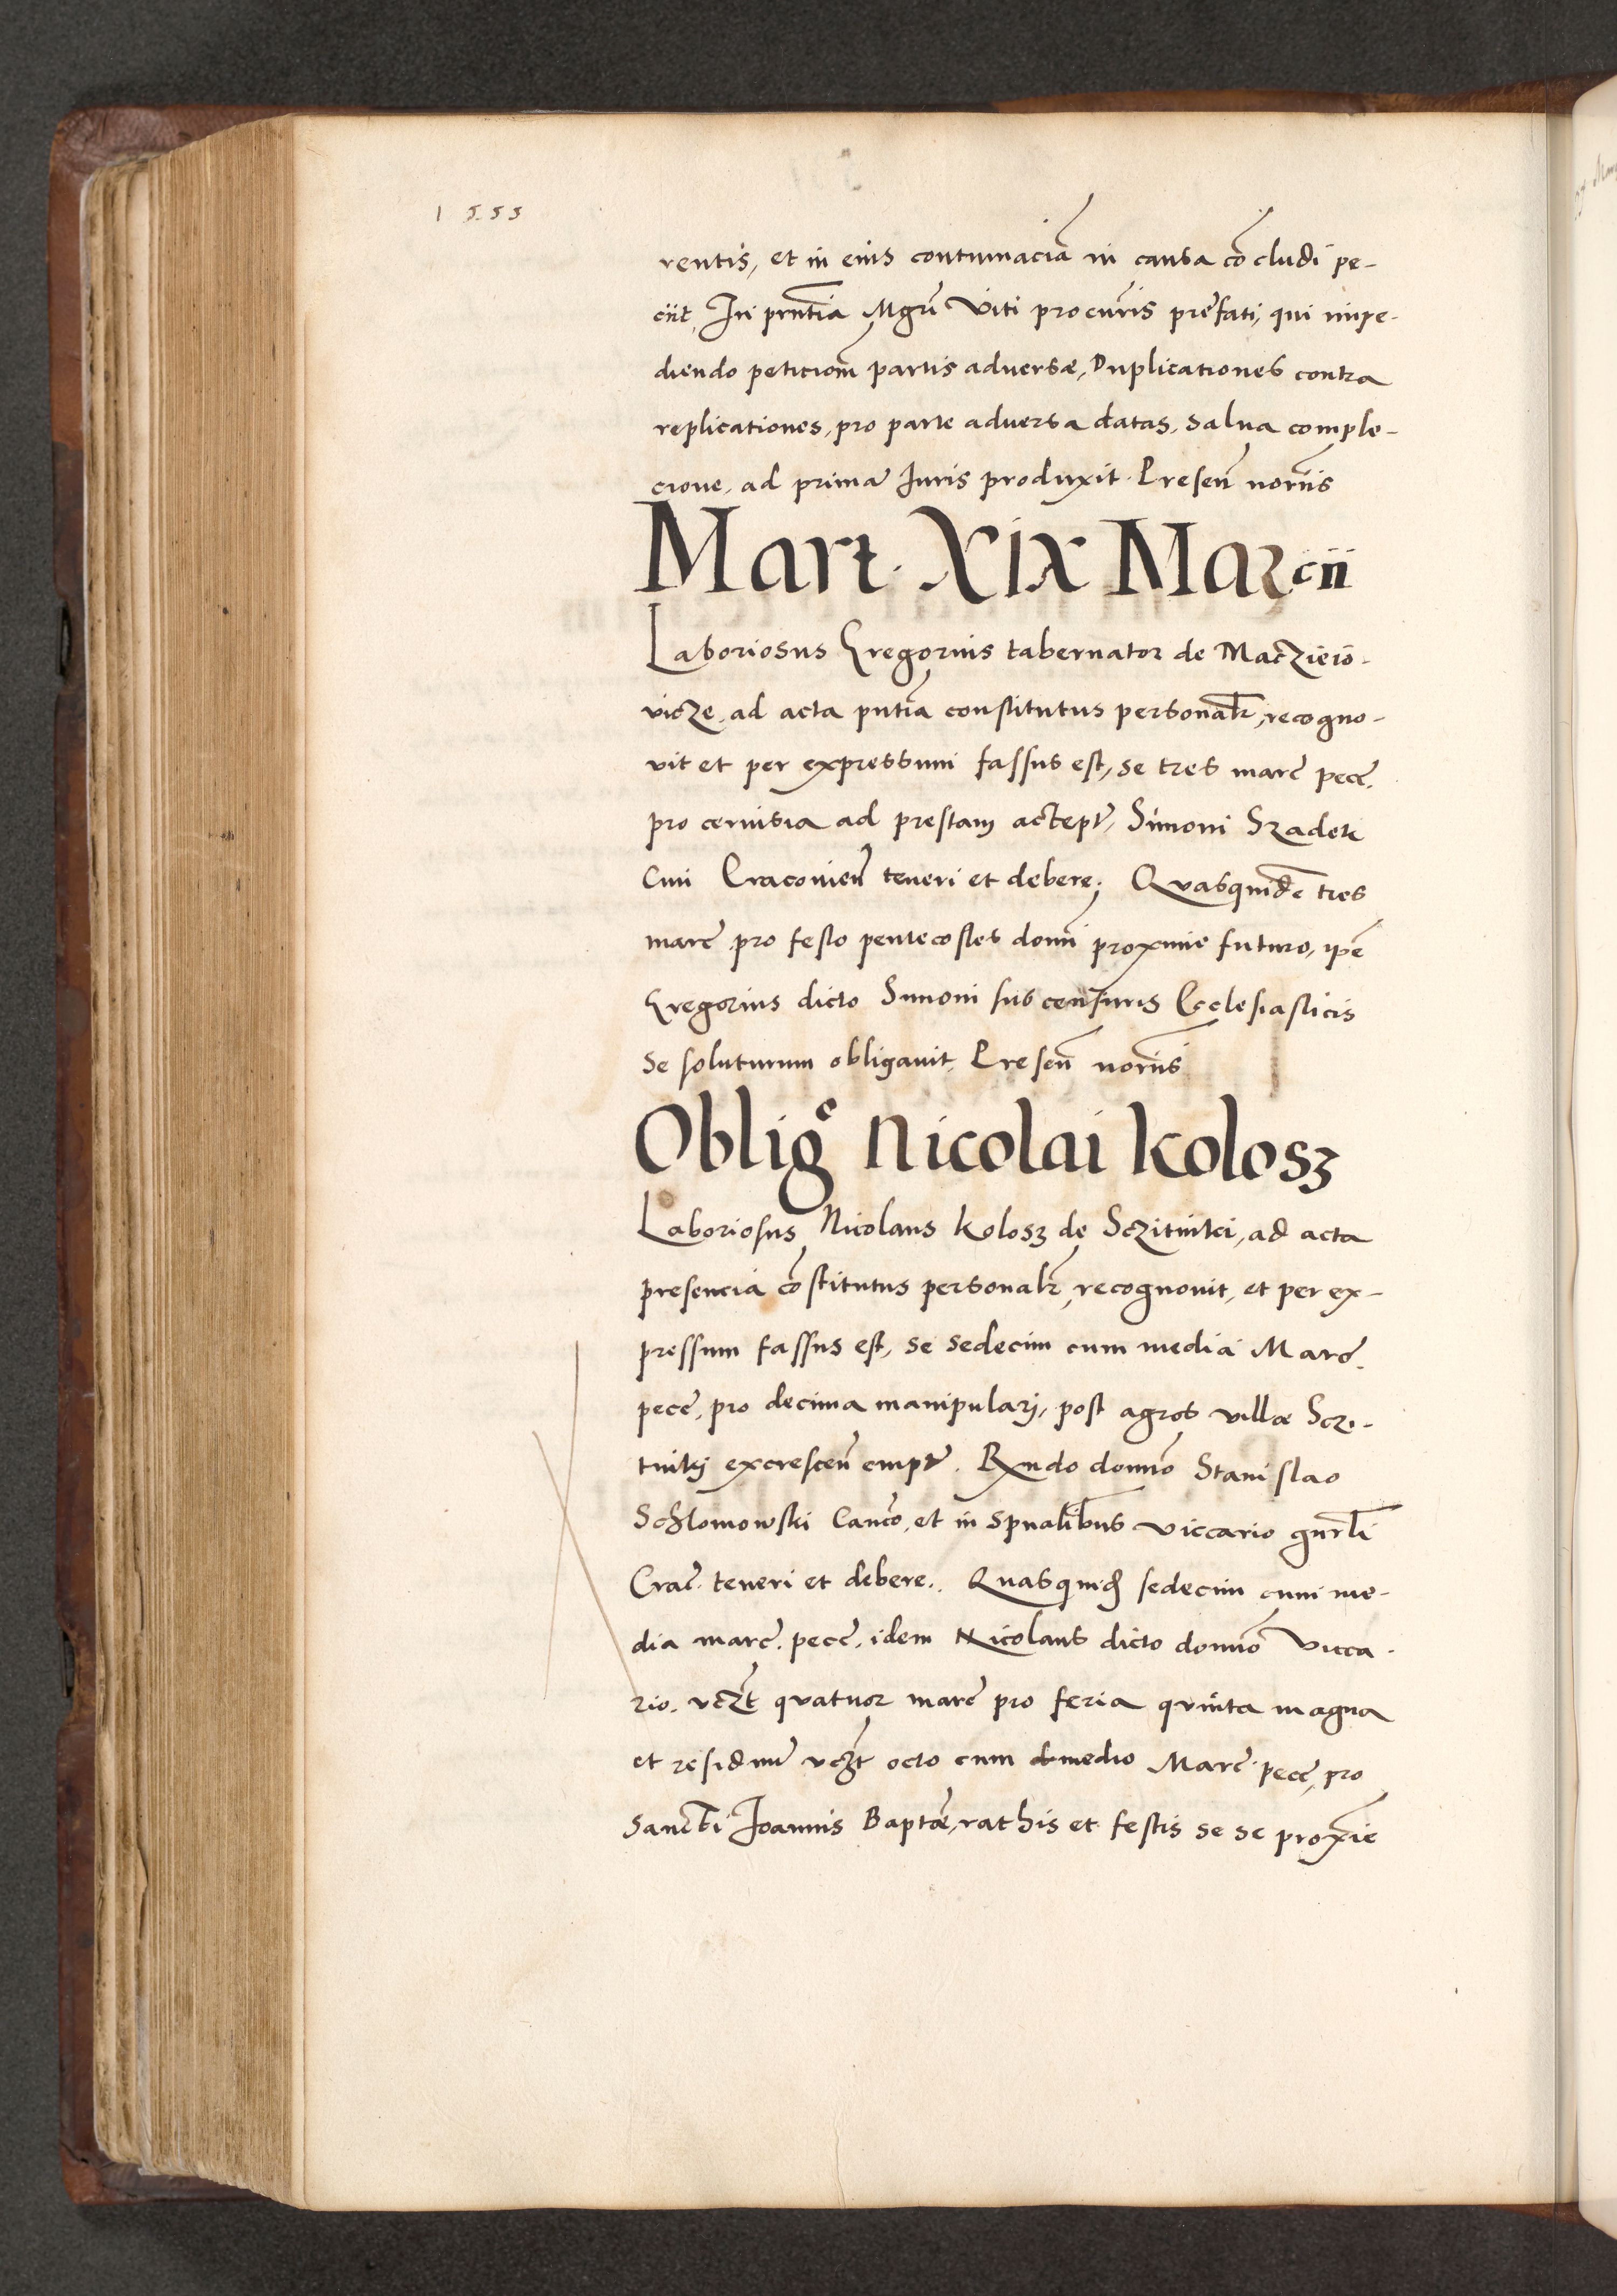 1553
rentis, et in eius contumaciã in causa cõcludi pe-
ciit, In pñtia Mgri Viti procuris prefati, qui impe-
diendo peticiom̃ partis adversæ, Duplicationes contra
replicationes, pro parte adversa datas, salua comple-
cione, ad primã Iuris produxit. Presen̄ noriis
Mart. XIX Marcii
Laboriosus Gregorius tabernator de Maczieio-
vicze, ad acta pñtia constitutus personalr̃, recogno-
vit et per expressum fassus est, se tres marc̃ pecc̃.
pro ceruisia ad prestam accept̃, Simoni Szadek
Ciui Cracovien̄ teneri et debere; Quasquidẽ tres
marc̃ pro festo pentecostes domi proxime futuro, ipẽ
Gregorius dicto Simoni sub censuris Ecclesiasticis
se soluturum obligauit. Presen̄ noriis
Oblig̊ Nicolai Kolosz
Laboriosus Nicolaus Kolosz de Sczitniki, ad acta
presencia cõstitutus personalr̃, recognouit, et per ex-
pressum fassus est, se sedecim cum media Marc̃.
pecc̃, pro decima manipulari, post agros villæ Sczi-
tniki excrescen̄ empt̃. Rxndo domno Stanislao
Schlomowski Canco, et in spualibus viccario gñrli
Crac̃. teneri et debere. Quasquid̃ sedecim cum me-
dia marc̃. pecc̃. idem Nicolaus dicto domno Vicca-
rio. vczt̃ quatuor marc̃ pro feria quinta magna
et residuũ vczt̃ octo cum dimedio Marc̃. pecc̃, pro
Sancti Joannis Baptæ, rathis et festis se se proxie